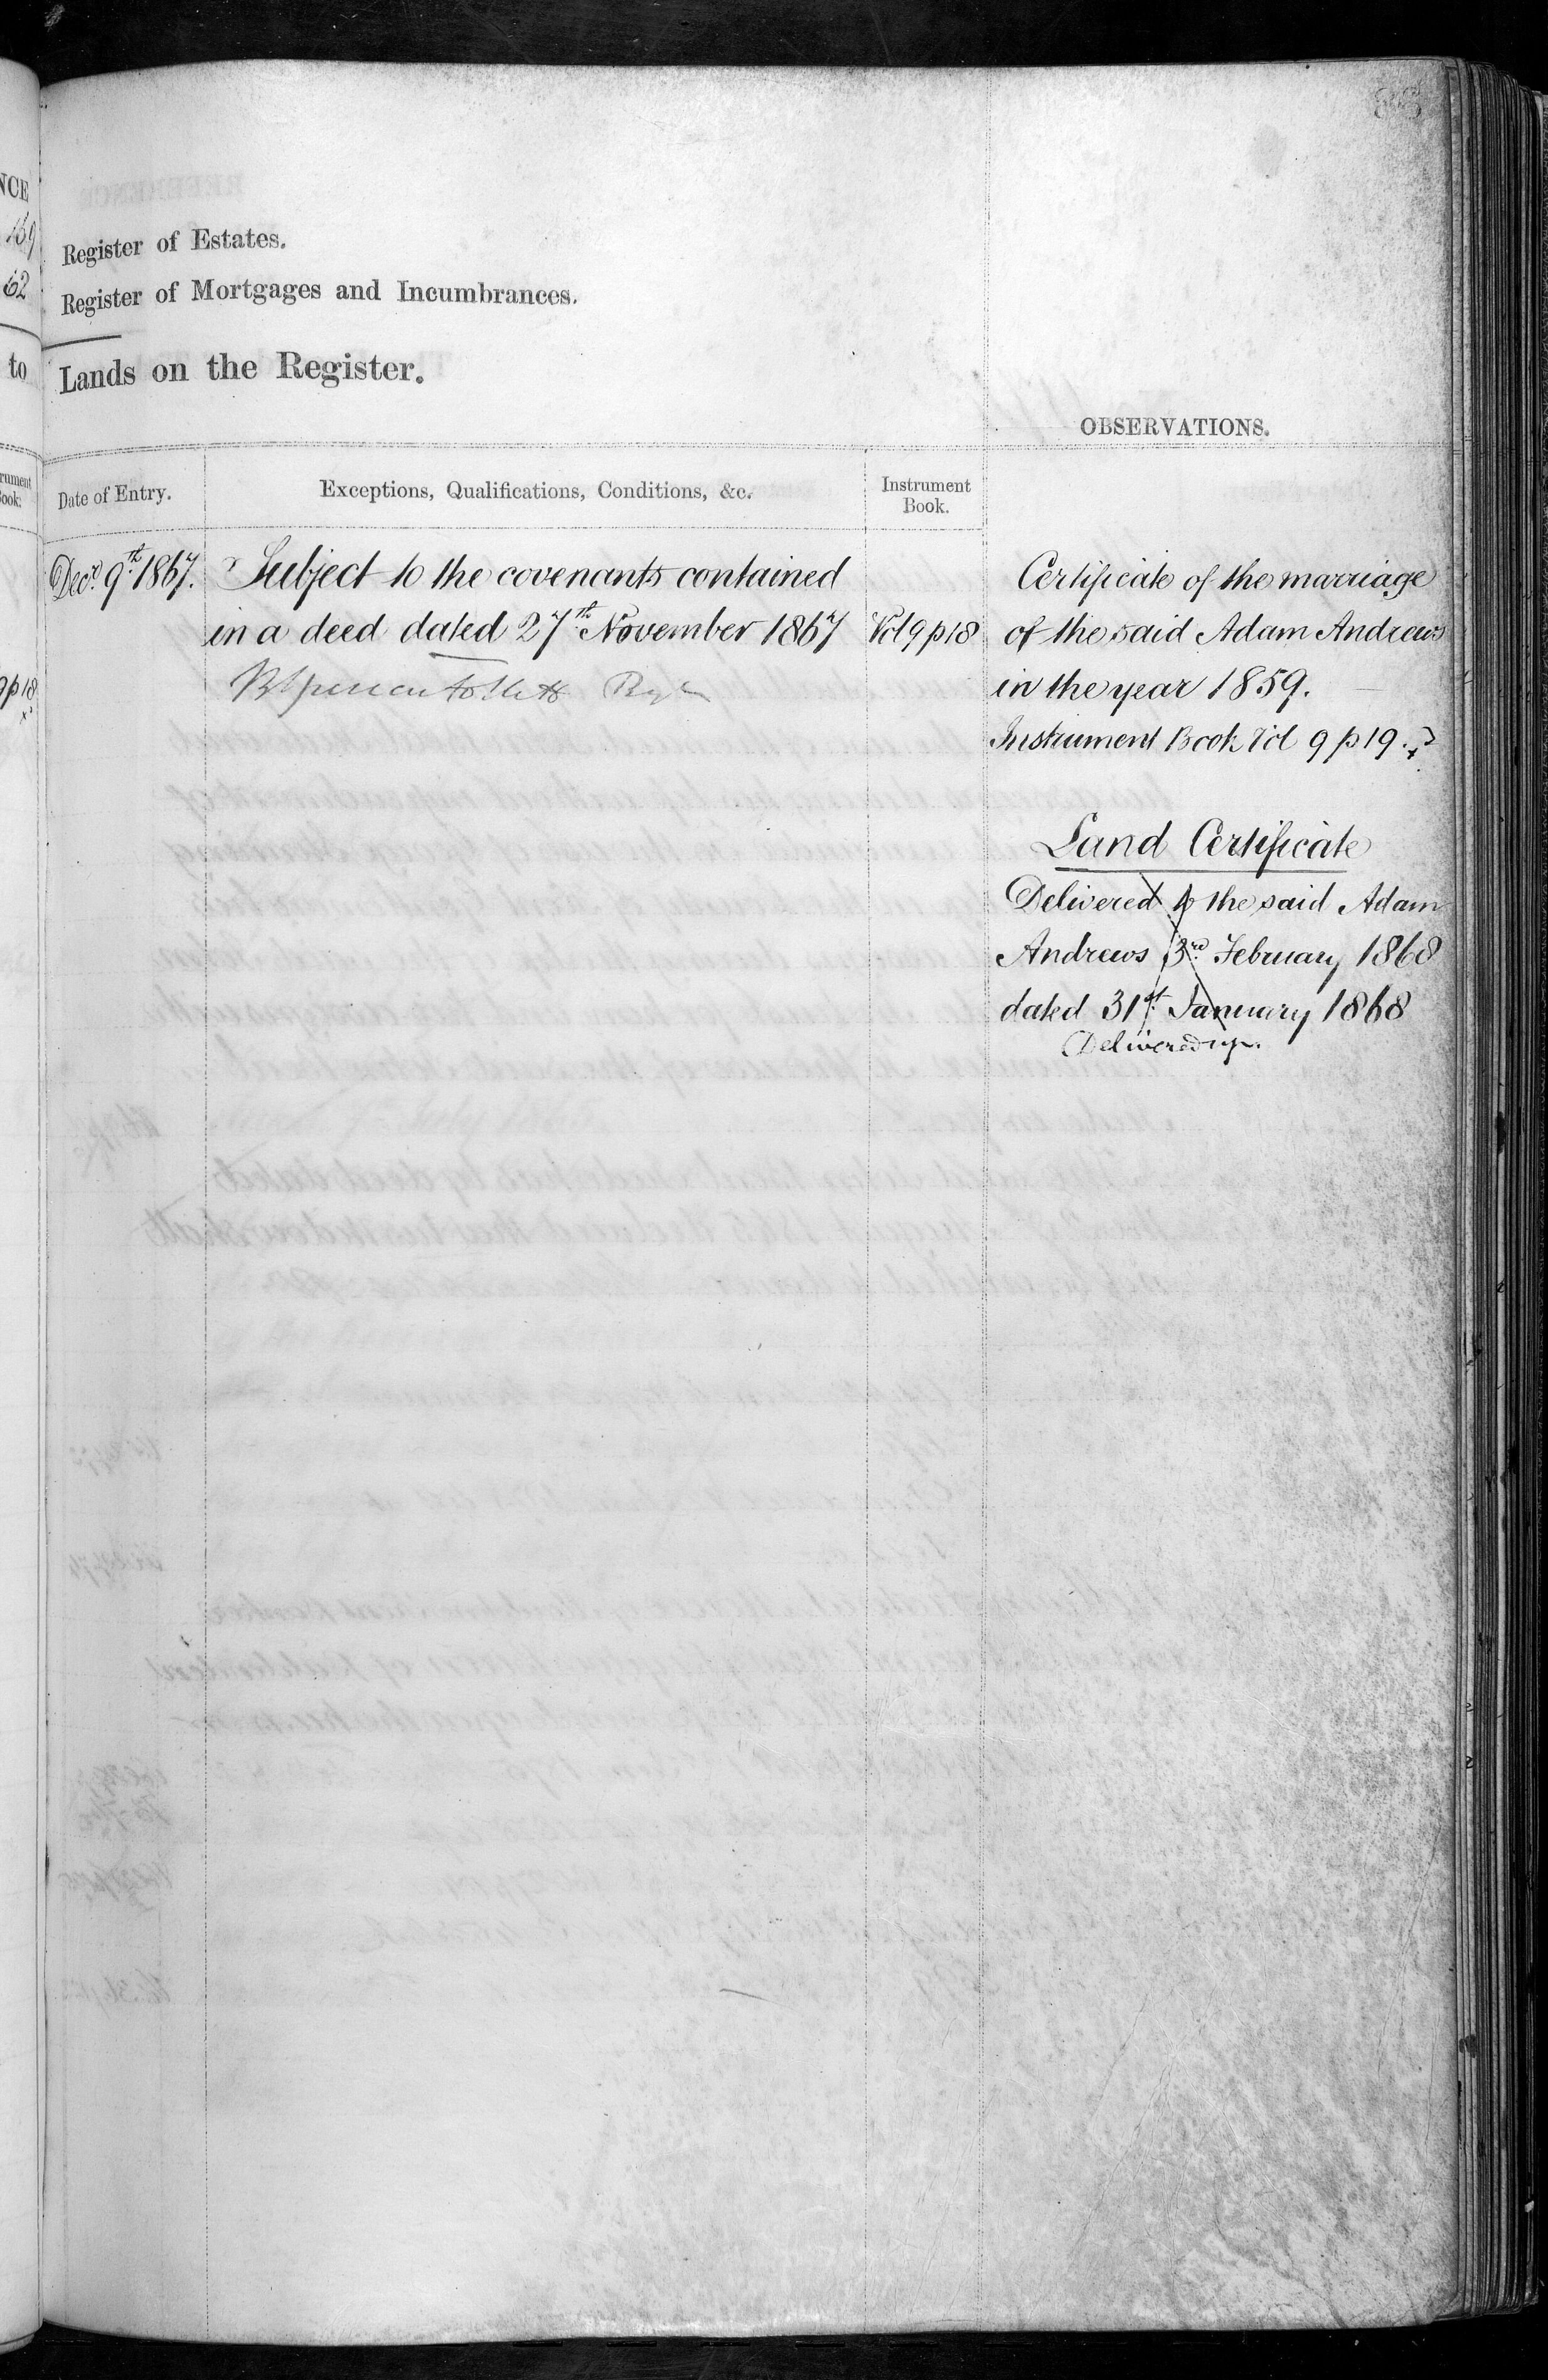 NCE
159
62
to
Register of Estates.
Register of Mortgages and Incumbrances.
Lands on the Register.
OBSERVATIONS.
Date of Entry.
Exceptions, Qualifications, Conditions, &c.
Instrument
Book.
Decr. 9th. 1867.
Subject to the covenants contained
in a deed dated 27th. November 1867
Vol 9 p 18
9 p 18
Certificate of the marriage
of the said Adam Andrews
in the year 1859.
Instrument Book Vol 9 p 19.
Land Certificate
Delivered to the said Adam
Andrews 3rd. February 1868
dated 31st. January 1868
Delivered up.